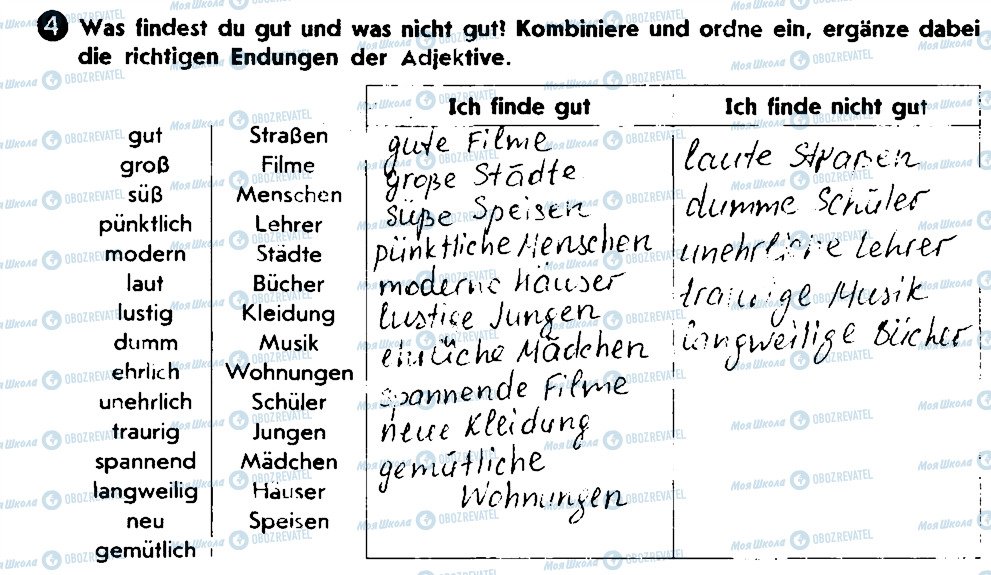 4 Was findest du gut und was nicht gut? Kombiniere und ordne ein, ergänze dabei
die richtigen Endungen der Adjektive.
Ich finde gut Ich finde nicht gut
gut Straßen
groß Filme
süß Menschen
pünktlich Lehrer
modern Städte
laut Bücher
lustig Kleidung
dumm Musik
ehrlich Wohnungen
unehrlich Schüler
traurig Jungen
spannend Mädchen
langweilig Häuser
neu Speisen
gemütlich
gute Filme
große Städte
süße Speisen
pünktliche Menschen
moderne Häuser
lustige Jungen
ehrliche Mädchen
spannende Filme
neue Kleidung
gemütliche
Wohnungen
laute Straßen
dumme Schüler
unehrliche Lehrer
traurige Musik
langweilige Bücher
Моя Школа OBOZREVATEL